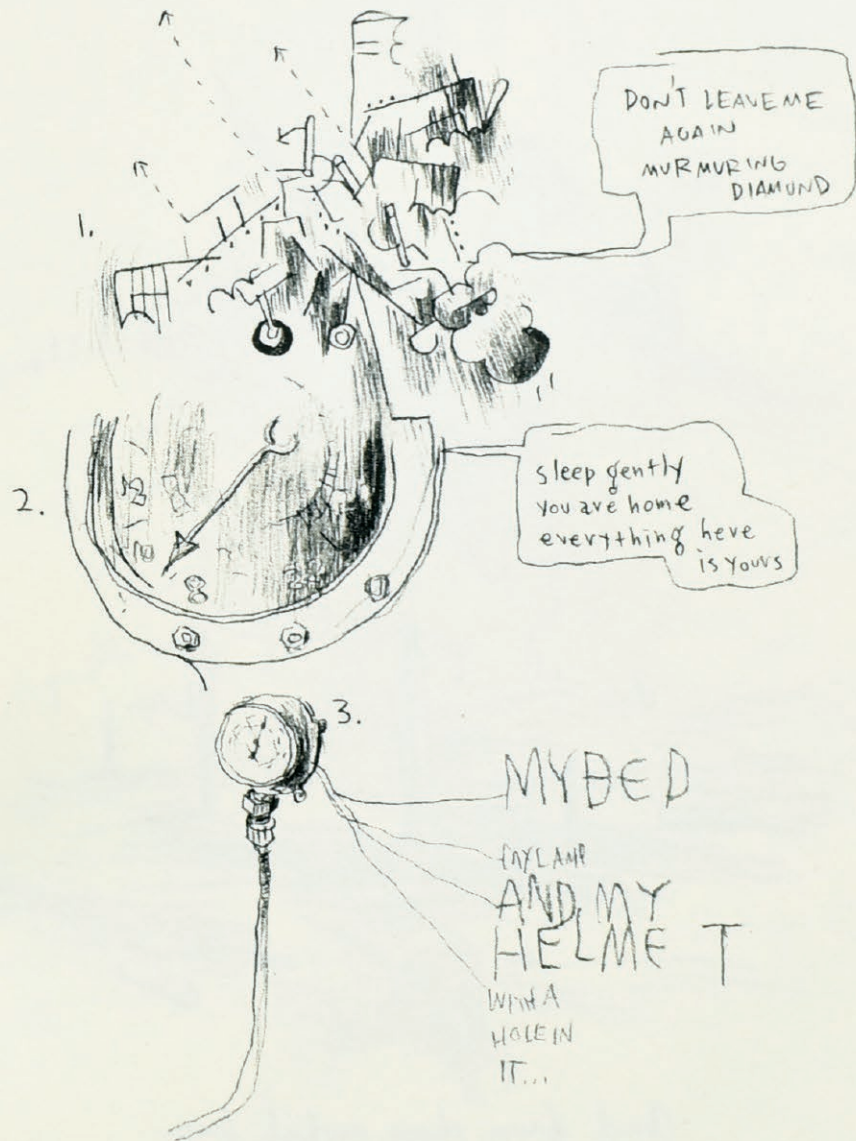 1.
DON'T LEAVE ME
AGAIN
MURMURING
DIAMUND
2.
sleep gently
you are home
everything here
is yours
3.
MY BED
MY LAMP
AND MY
HELMET
WITH A
HOLE IN
IT...